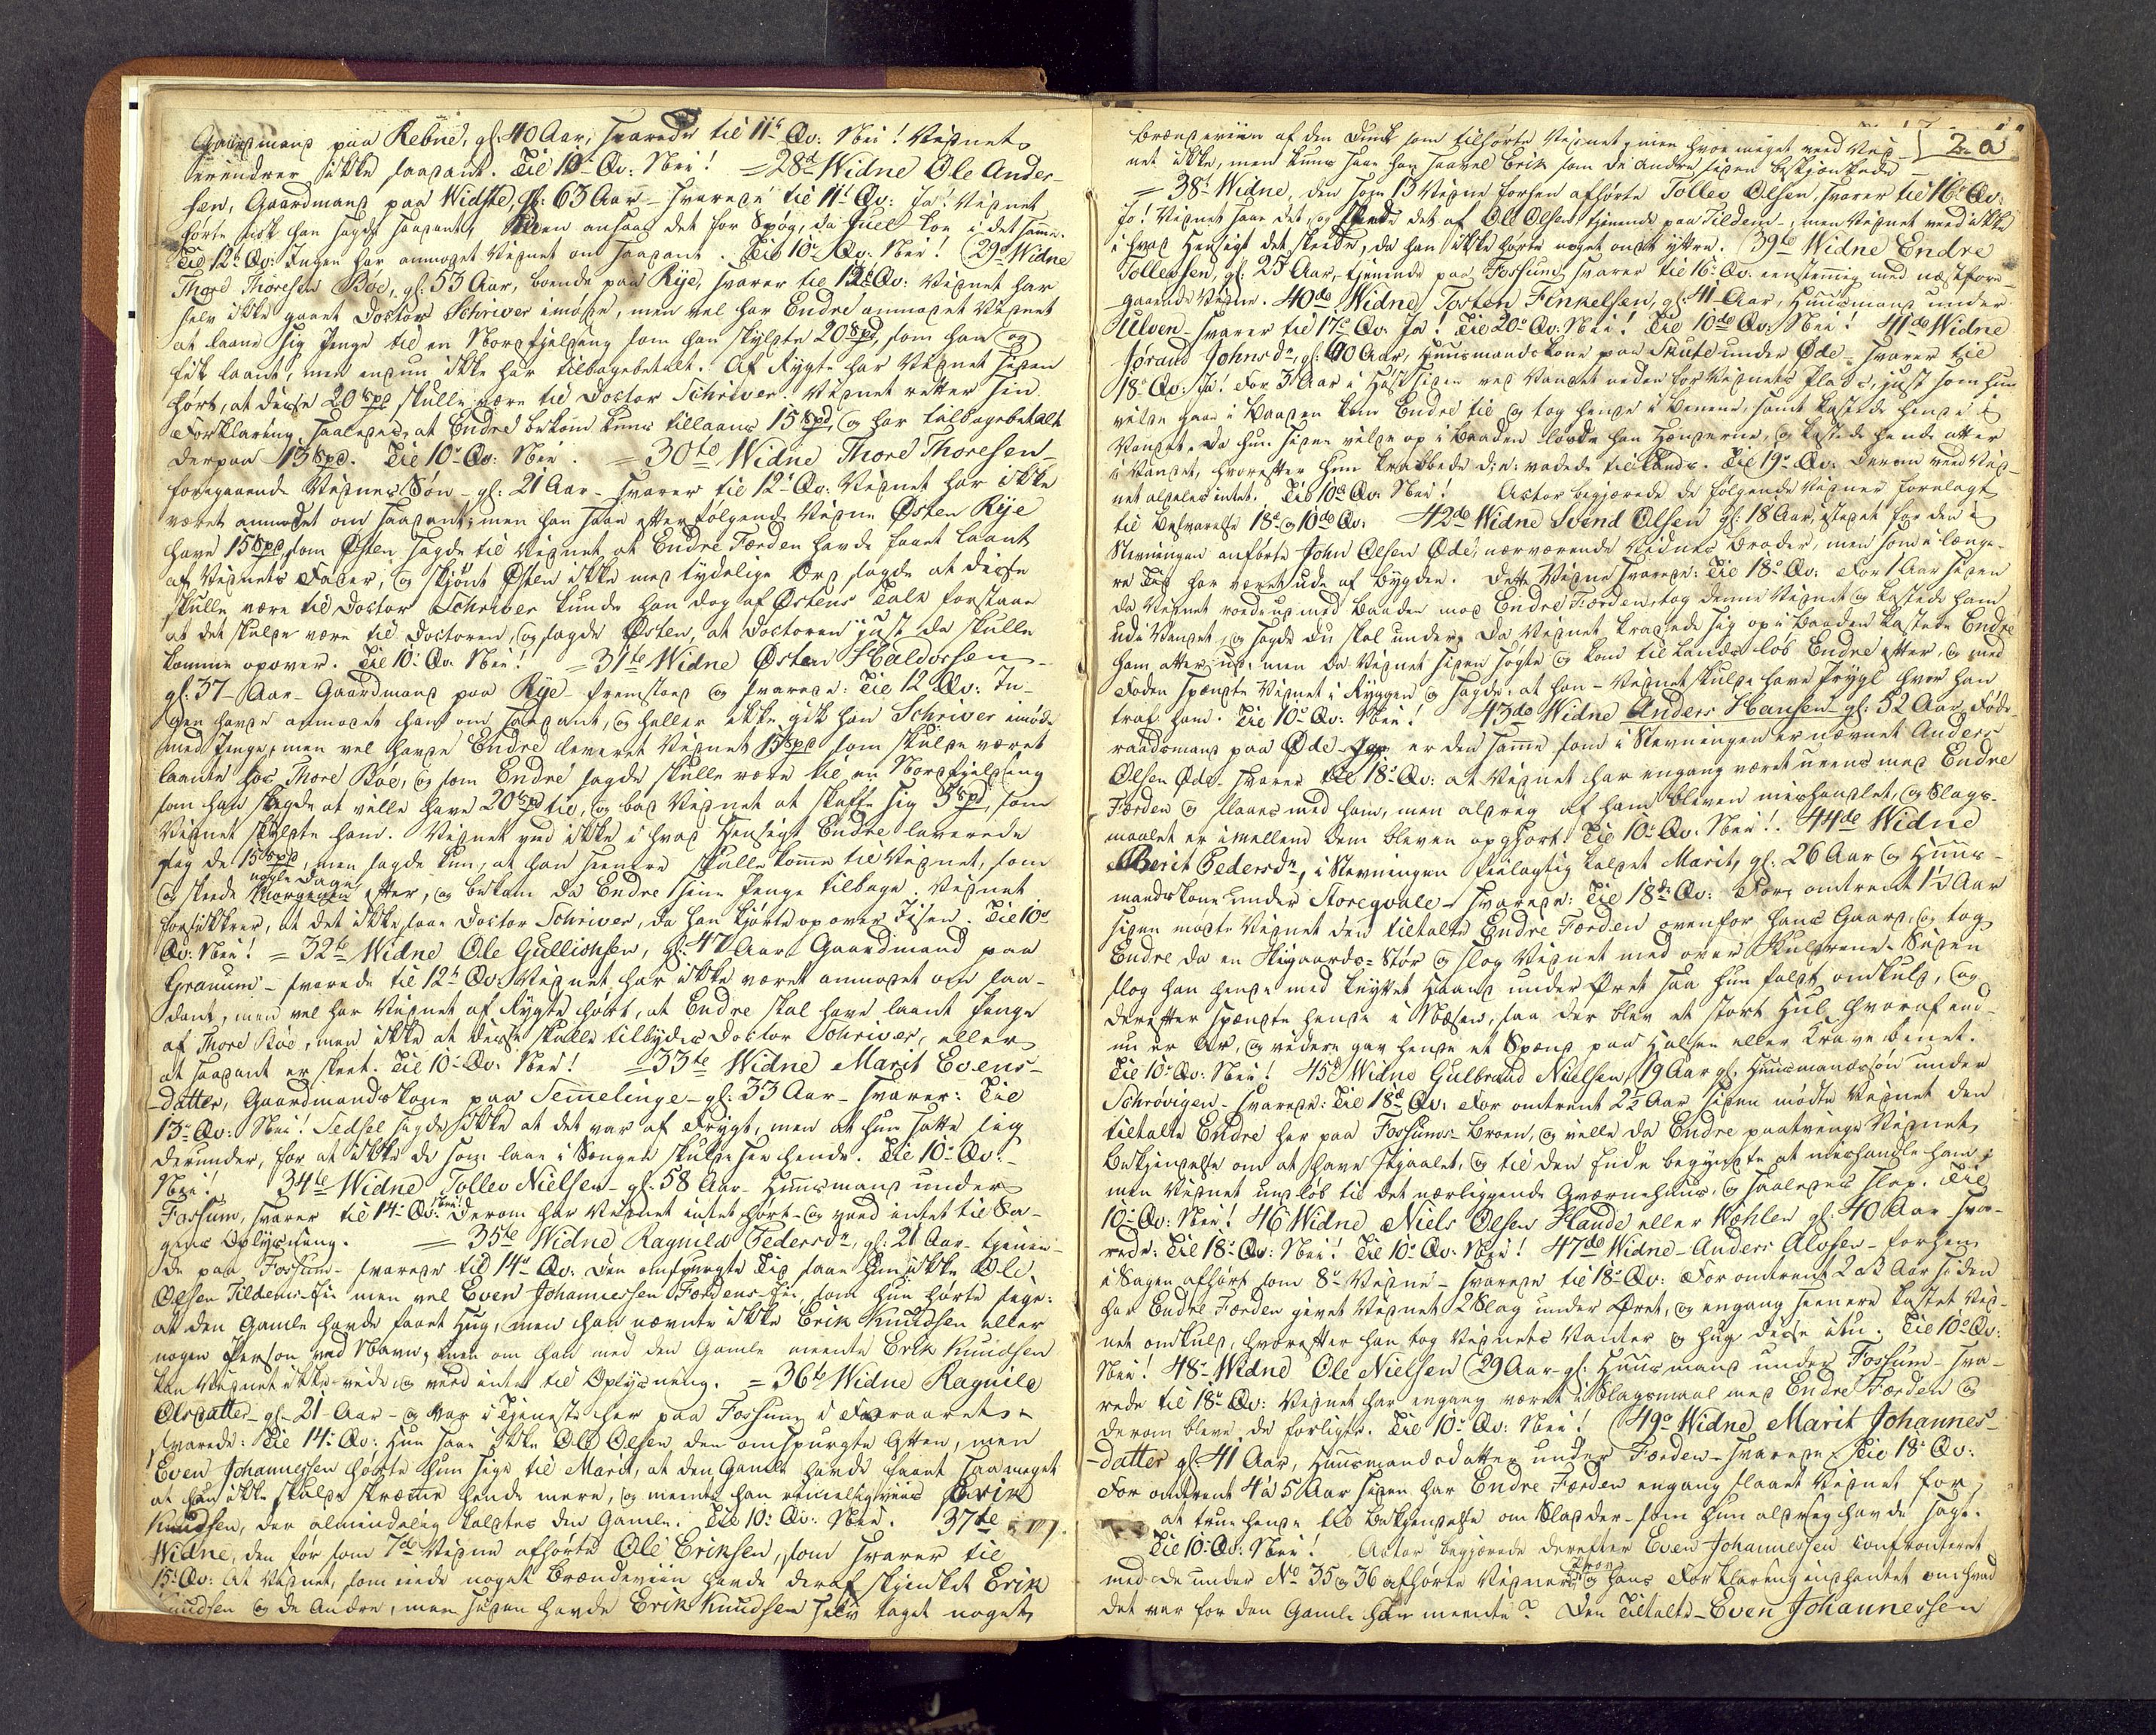 Gaardmand paa Rebne, gl: 40 Aar, svarede til 11t Qv: Nei! Vidnet
erindrer ikke saadant. Til 10d Qv: Nei! = 28d Widne Ole Ander-
sen, Gaardmand paa Widste, gl: 63 Aar – svarede til 11t Qv: Ja! Vidnet
hørte at han sagde saadant, men ansaae det for Spøg, da Juel loe i det samme.
Til 12t Qv: Ingen har anmodet Vidnet om saadant. Til 10d Qv: Nei! 29d Widne
Thore Thoresen Böe, gl: 53 Aar, boende paa Rye, svarer til 12t Qv: Vidnet har
selv ikke gaaet Doctor Schriver imøde, men vel har Endre anmodet Vidnet
at laane sig Penge til en Nordfjeldeng som han skyldte 20 Spd, som han og
fik laant, men endnu ikke har tilbagebetalt. Af Rygte har Vidnet siden
hørt, at disse 20 Spd skulle være til Doctor Schriver. Vidnet retter sin
Forklaring saaledes, at Endre bekom kuns tillaans 15 Spd, og har tilbagebetalt
derpaa 13 Spd. Til 10d Qv: Nei. = 30te Widne Thore Thoresen –
foregaaende Vidnes Søn – gl: 21 Aar – svarer til 12t Qv: Vidnet har ikke
været anmodet om saadant; men han saae efterfølgende Vidne Østen Rye
have 15 Spd, som Østen sagde til Vidnet at Endre Fœrden havde faaet laant
af Vidnets Fader, og skjönt Østen ikke med tydelige Ord sagde at disse
skulle være til Doctor Schriver kunde han dog af Østens Tale forstaae
at det skulde være til Doctoren, og sagde Østen, at Doctoren just da skulle
komme opover. Til 10d Qv. Nei! = 31te Widne Østen Haldorsen –
gl: 37 – Aar – Gaardmand paa Rye – fremstaaer og svarede: Til 12 Qv: In-
gen havde anmodet ham om saadant, og heller ikke gik han Schriver imøde
med Penge, men vel havde Endre leveret Vidnet 15 Spd som skulde været
laante hos Thore Böe, og som Endre sagde skulle være til en Nordfjeldeng
som han sagde at ville have 20 Spd til, og bad Vidnet at skaffe sig 5 Spd, som
Vidnet skyldte ham. Vidnet ved ikke i hvad Hensigt Endre leverede
sig de 15 Spd, men sagde kun, at han senere skulle komme til Vidnet, som
nogle Dage
og skeede Morgenen efter, og bekom da Endre sine Penge tilbage. Vidnet
forsikkrer, at det ikke saae Doctor Schriver, da han kjørte opover siden. Til 10d
Qv: Nei! = 32te Widne Ole Gullichsen, gl: 47 Aar Gaardmand paa
Granum – svarede til 12t Qv: Vidnet har ikke været anmodet om saa-
dant, men vel har Vidnet af Rygte hørt, at Endre skal have laant Penge
af Thore Böe, men ikke at disse skulle tilbydes Doctor Schriver, eller
at saadant er skeet. Til 10d Qv: Nei! = 33te Widne Marit Evens-
datter, Gaardmandskone paa Semelinge – gl: 33 Aar – svarer: Til
13d Qv: Nei! Sedsel sagde ikke at det var af Frygt, men at hun satte sig
derunder, for at ikke de som laae i Sengen skulde see hende. Til 10d Qv:
Nei! 34te Widne Tollev Nielsen – gl: 58 Aar – Huusmand under
Fossum, svarer til 14d Qv: Nei! Derom har Vidnet intet hørt – og veed intet til Sa-
gens Oplysning. = 35te Widne Ragnild Pedersdr, gl: 21 Aar, tjenen-
de paa Fossum – svarede til 14d Qv: Den omspurgte Tid saae hun ikke Ole
Olsen Tildens-Eie men vel Even Johannessen Fœrdens-Eie, som hun hørte sige:
at den Gamle havde faaet Hug, men han nævnte ikke Erik Knudsen eller
nogen Person ved Navn; men om han med den Gamle meente Erik Knudsen
kan Vidnet ikke vide og veed intet til Oplysning. = 36te Widne Ragnild
Olsdatter – gl – 21 – Aar – og var i Tjeneste her paa Fossum i Foraaret –
svarede: Til 14d Qv: Hun saae ikke Ole Olsen den omspurgte Aften, men
Even Johannessen hørte hun sige til Marit, at den Gamle havde faaet saa meget
at han ikke skulde skræme hende mere, og meente han rimeligviis Erik
Knudsen, den almindelig kaldtes den Gamle. Til 10d Qv: Nei. 37te
Widne, den før som 7de Vidne afhørte Ole Eriksen, som svarer til
15d Qv: At Vidnet, som eiede noget Brændeviin havde deraf skjenket Erik
Knudsen og de Andre, men siden havde Erik Knudsen selv taget noget
2 a
Brændeviin af den Dunk som tilhørte Vidnet, men hvor meget veed Vid-
net ikke, men kuns saae han saavel Erik som de Andre siden beskjenkede
= 38t Widne, den som 13 Vidne forhen afhørte Tollev Olsen, svarer til 16d Qv:
Ja! Vidnet saae det, og skeede det af Ole Olsen tjenende paa Tildem –, men Vidnet veed ikke
i hvad Hensigt det skeede, da han ikke hørte noget ondt yttre. 39te Widne Endre
Tollevsen, gl: 25 Aar, tjenende paa Fossum, svarer til 16d Qv: eenstemig med næstfore-
gaaende Vidne. 40de Widne Tosten Finkelsen, gl: 41 Aar, Huusmand under
Ulven – svarer til 17d Qv: Ja! Til 20d Qv: Nei! Til 10de Qv: Nei! 41de Widne
Jörand Johnsdr, gl: 40 Aar, Huusmandskone paa Skute under Øde – svarer til
18d Qv: Ja! For 3 Aar i Høst siden ved Vandet neden for Vidnets Plads, just som hun
vilde gaae i Baaden kom Endre til og tog hende i Benene, samt kastede hende i
Vandet. Da hun siden vilde op i Baaden løsde han Hænderne, og kastede hende atter
i Vandet, hvorefter hun krabbede d: e: vadede tillands. Til 19d Qv: Derom veed Vid-
net aldeles intet. Til 10d Qv: Nei! Actor begjærede de følgende Vidner forelagt
til Besvarelse 18d og 10de Qv: 42de Widne Svend Olsen gl: 18 Aar, istedet for den i
Stevningen anførte John Olsen Öde, nærværende Vidnes Broder, men som i længe-
re Tid har været ude af Bygden. Dette Vidne svarede: Til 18d Qv: For 1 Aar siden
da Vidnet roede ud med Baaden mod Endre Fœrden, tog denne Vidnet og kastede ham
ud i Vandet, og sagde du skal under. Da Vidnet kravede sig op i Baaden kastede Endre
ham atter ud, men da Vidnet siden søgte og kom til Lands løb Endre efter, og med
Foden spændte Vidnet i Ryggen og sagde: at han – Vidnet skulde have Prygl hvor han
traf ham. Til 10d Qv: Nei! 43de Widne Anders Hansen – gl: 52 Aar, Føde-
raadsmand paa Øde – er den samme som i Stevningen er nævnet Anders
Olsen Öde – svarer til 18d Qv: at Vidnet har engang været uvens med Endre
Fœrden og slaaes med ham, men aldrig af ham bleven mishandlet, og Slags-
maalet er imellem dem bleven opgjort. Til 10d Qv: Nei! 44de Widne
Berit Pedersdr, i Stevningen feilagtig kaldet Marit, gl: 26 Aar og Huus-
mandskone under Storeqvale – svarede: Til 18de Qv: For omtrent 1½ Aar
siden mødte Vidnet den tiltalte Endre Fœrden ovenfor hans Gaard, og tog
Endre da en Skigaards-Stör og slog Vidnet med over Skuldrene. Siden
slog han hende med knyttet Haand under Øret saa hun faldt omkuld, og
derefter spændte hende i Næsen, saa der blev et stort Hul, hvoraf end-
nu er Ar, og videre gav hende et Spænd paa Halsen eller Kravebenet.
Til 10d Qv: Nei! 45d Widne Gulbrand Nielsen, 19 Aar gl. Huusmandssøn under
Schrövigen – svarede: Til 18d Qv: For omtrent 2½ Aar siden mødte Vidnet den
tiltalte Endre her paa Fossums-Broen, og ville da Endre paatvinge Vidnet
Bekjendelse om at have stjaalet, og til den Ende begyndte at mishandle ham;
men Vidnet undløb til det nærliggende Qværnehuus, og saaledes slap. Til
10d Qv: Nei! 46 Widne Niels Olsen Haude eller Wöhler gl: 40 Aar – sva-
rede: Til 18d Qv: Nei! Til 10d Qv: Nei! 47de Widne – Anders Alvsen – forhen
i Sagen afhørt som 8d Vidne – svarede til 18d Qv: For omtrent 2 a 3 Aar siden
har Endre Fœrden givet Vidnet 2 Slag under Øret, og engang senere kastet Vid-
net omkuld, hvorefter han tog Vidnets Vanter og hug disse itu. Til 10d Qv:
Nei! 48d Widne Ole Nielsen 29 Aar – gl: Huusmand under Fossum – sva-
rede til 18d Qv: Vidnet har engang været i Slagsmaal med Endre Fœrden og
derom bleve de forligte. Til 10d Qv: Nei! 49d Widne Marit Johannes-
datter gl: 41 Aar, Huusmandsdatter under Fœrden – svarede: Til 18d Qv:
For omtrent 4 à 5 Aar siden har Endre Fœrden engang slaaet Vidnet for
at true hende til Bekjendelse om Sladder – som hun aldrig havde sagt.
Til 10d Qv: Nei! Actor begjærede derefter Even Johannessen confronteret
med de under No 35 og 36 afhørte Vidner og hans Forklaring indhentet om hvad
det var for den Gamle han meente? Den Tiltalte – Even Johannessen